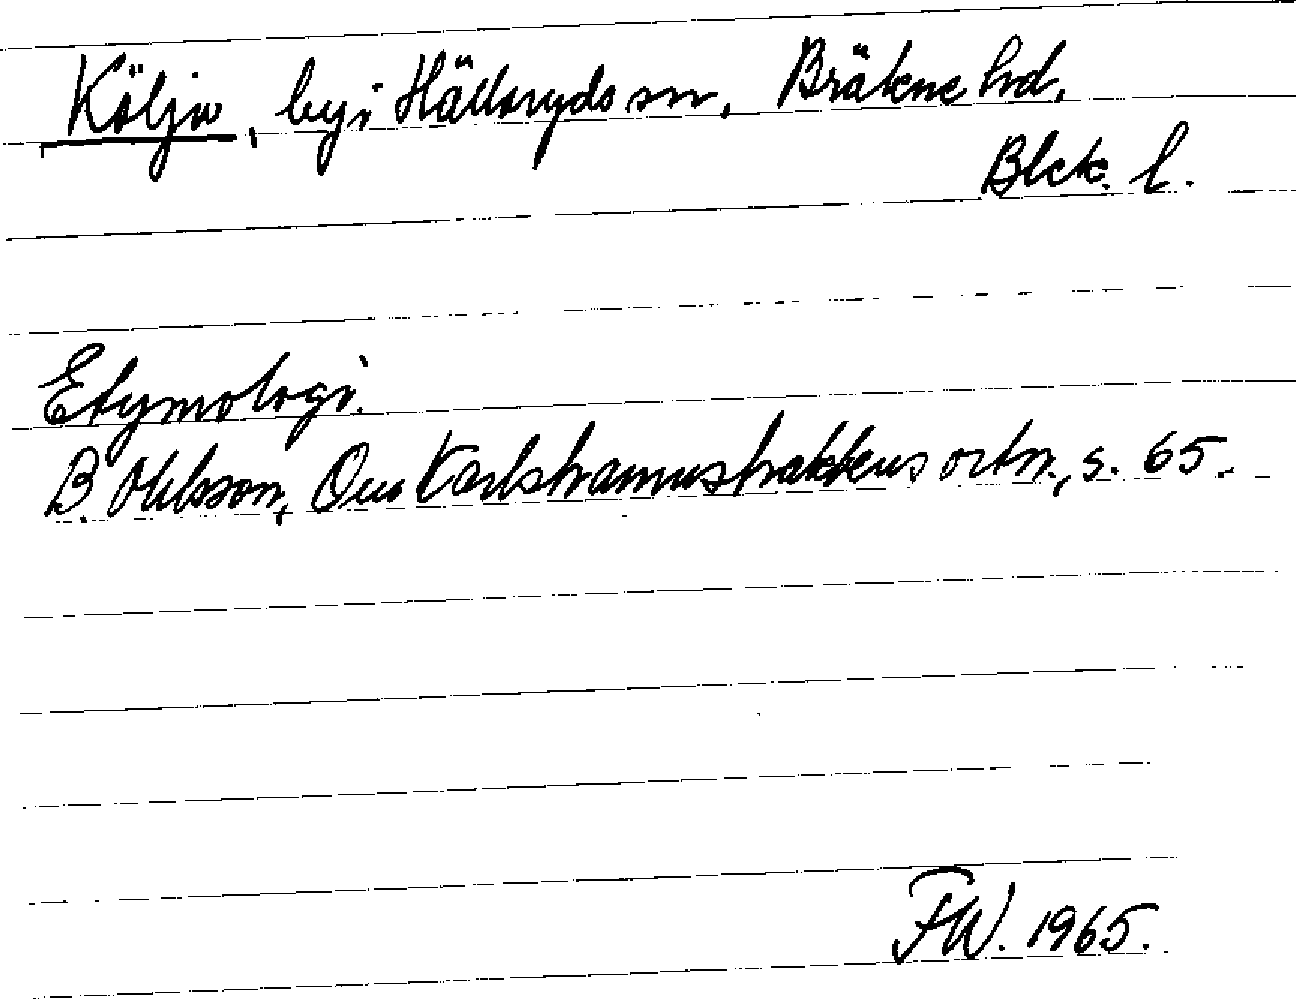 Kölja, by i Hällaryds sn, Bräkne hd,
Blek. l.
Etymologi.
B. Ohlsson, Om Karlshamnstraktens ortn., s. 65.
FW. 1965.